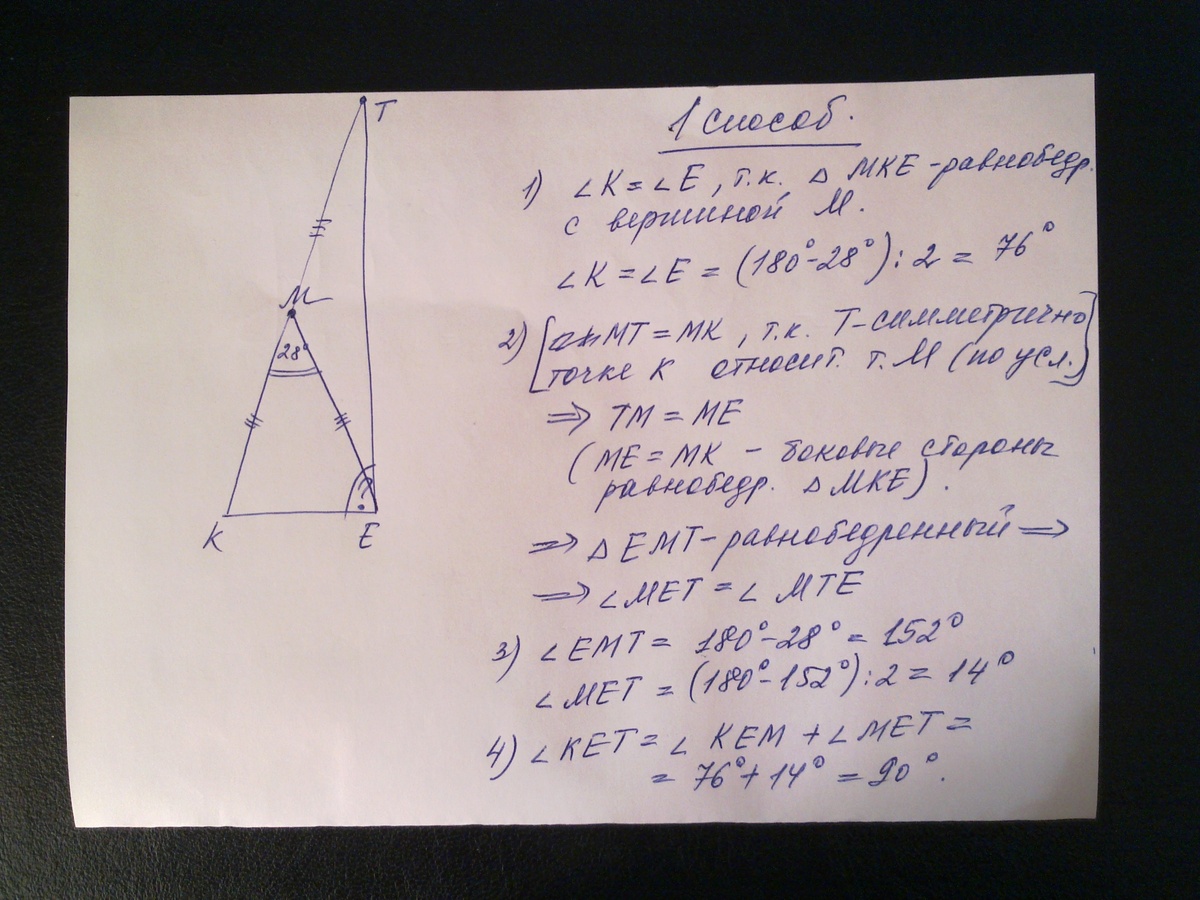 T
M
28°
?
K
E
1 способ.
1) ∠K = ∠E, т.к. △ MKE - равнобедр.
с вершиной M.
∠K = ∠E = (180° - 28°) : 2 = 76°
2) [MT = MK, т.к. T - симметрично
точке K относит. т. M (по усл.)]
⇒ TM = ME
(ME = MK - боковые стороны
равнобедр. △ MKE).
⇒ △ EMT - равнобедренный ⇒
⇒ ∠MET = ∠ MTE
3) ∠EMT = 180° - 28° = 152°
∠MET = (180° - 152°) : 2 = 14°
4) ∠KET = ∠ KEM + ∠ MET =
= 76° + 14° = 90°.